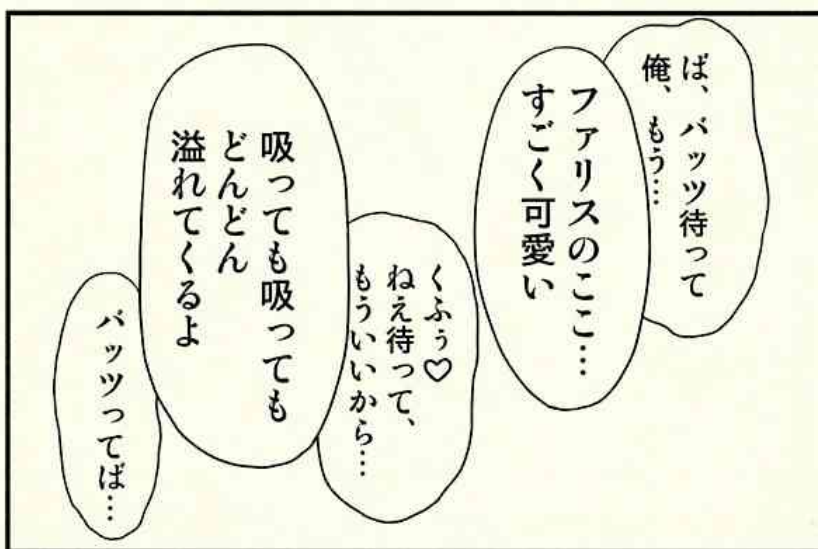 ば、バッツ待って
俺、もう…
ファリスのここ…
すごく可愛い
くふぅ♡
ねえ待って、
もういいから…
吸っても吸っても
どんどん
溢れてくるよ
バッツってば…